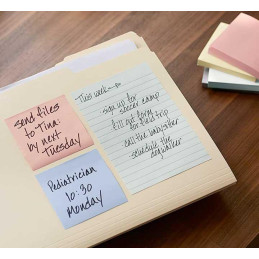 send files
to Tina:
by next
Tuesday
This week
sign up for
soccer camp
fill out form
for field trip
call the babysitter
schedule the
dogwalker
Pediatrician
10:30
Monday